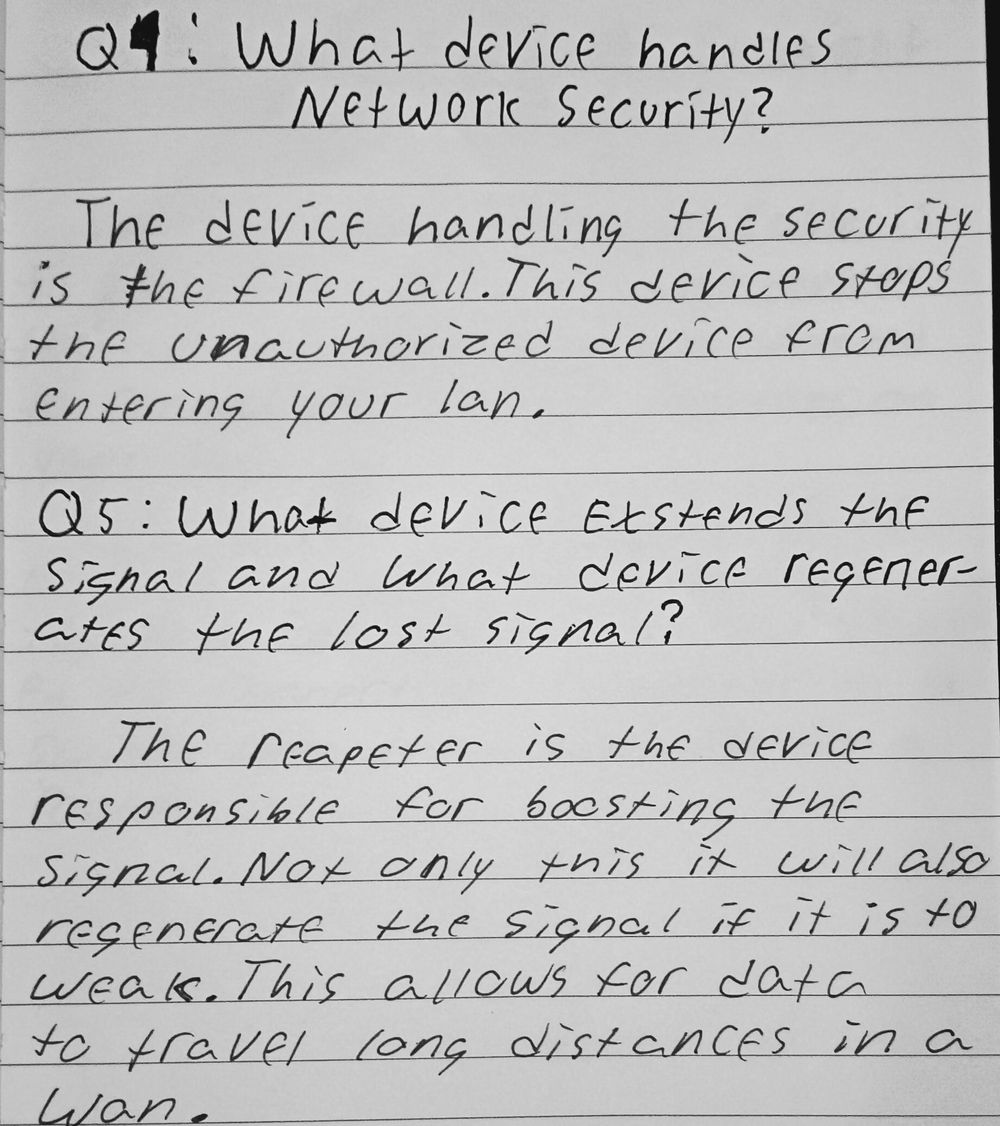 Q4: What device handles
Network Security?
The device handling the security
is the firewall. This device stops
the unauthorized device from
entering your lan.
Q5: What device Exstends the
signal and what device regener-
ates the lost signal?
The reapeter is the device
responsible for boosting the
signal. Not only this it will also
regenerate the signal if it is to
weak. This allows for data
to travel long distances in a
wan.